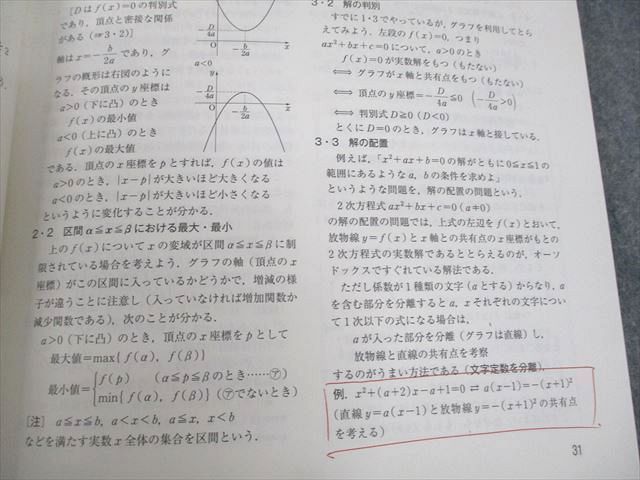 [Dはf(x)=0の判別式
であり，頂点と密接な関係
がある（⇨3・2）]
軸はx=−b/2aであり，グ
ラフの概形は右図のように
なる．その頂点のy座標は
a>0（下に凸）のとき
f(x)の最小値
a<0（上に凸）のとき
f(x)の最大値
である．頂点のx座標をpとすれば，f(x)の値は
a>0のとき，|x−p|が大きいほど大きくなる
a<0のとき，|x−p|が大きいほど小さくなる
というように変化することが分かる．
−D/4a
O
−b/2a
x
a<0
y
−D/4a
O
−b/2a
x
2・2 区間α≦x≦βにおける最大・最小
上のf(x)についてxの変域が区間α≦x≦βに制
限されている場合を考えよう．グラフの軸（頂点のx
座標）がこの区間に入っているかどうかで，増減の様
子が違うことに注意し（入っていなければ増加関数か
減少関数である），次のことが分かる．
a>0（下に凸）のとき，頂点のx座標をpとして
最大値=max{f(α), f(β)}
最小値={f(p) （α≦p≦βのとき……㋐）
min{f(α), f(β)}（㋐でないとき）
[注] a≦x≦b, a<x<b, a≦x, x<b
などを満たす実数x全体の集合を区間という．
3・2 解の判別
すでに1・3でやっているが，グラフを利用してとら
えてみよう．左段のf(x)=0，つまり
ax²+bx+c=0について，a>0のとき
f(x)=0が実数解をもつ（もたない）
⟺ グラフがx軸と共有点をもつ（もたない）
⟺ 頂点のy座標=−D/4a≦0 （−D/4a>0）
⟺ 判別式D≧0（D<0）
とくにD=0のとき，グラフはx軸と接している．
3・3 解の配置
例えば，「x²+ax+b=0の解がともに0≦x≦1の
範囲にあるようなa, bの条件を求めよ」
というような問題を，解の配置の問題という．
2次方程式ax²+bx+c=0（a≠0）
の解の配置の問題では，上式の左辺をf(x)とおいて，
放物線y=f(x)とx軸との共有点のx座標がもとの
2次方程式の実数解であるととらえるのが，オーソ
ドックスですぐれている解法である．
ただし係数が1種類の文字（aとする）からなり，a
を含む部分を分離するとa, xそれぞれの文字につい
て1次以下の式になる場合は，
aが入った部分を分離（グラフは直線）し，
放物線と直線の共有点を考察
するのがうまい方法である（文字定数を分離）．
例．x²+(a+2)x−a+1=0 ⇄ a(x−1)=−(x+1)²
（直線y=a(x−1)と放物線y=−(x+1)²の共有点
を考える）
31